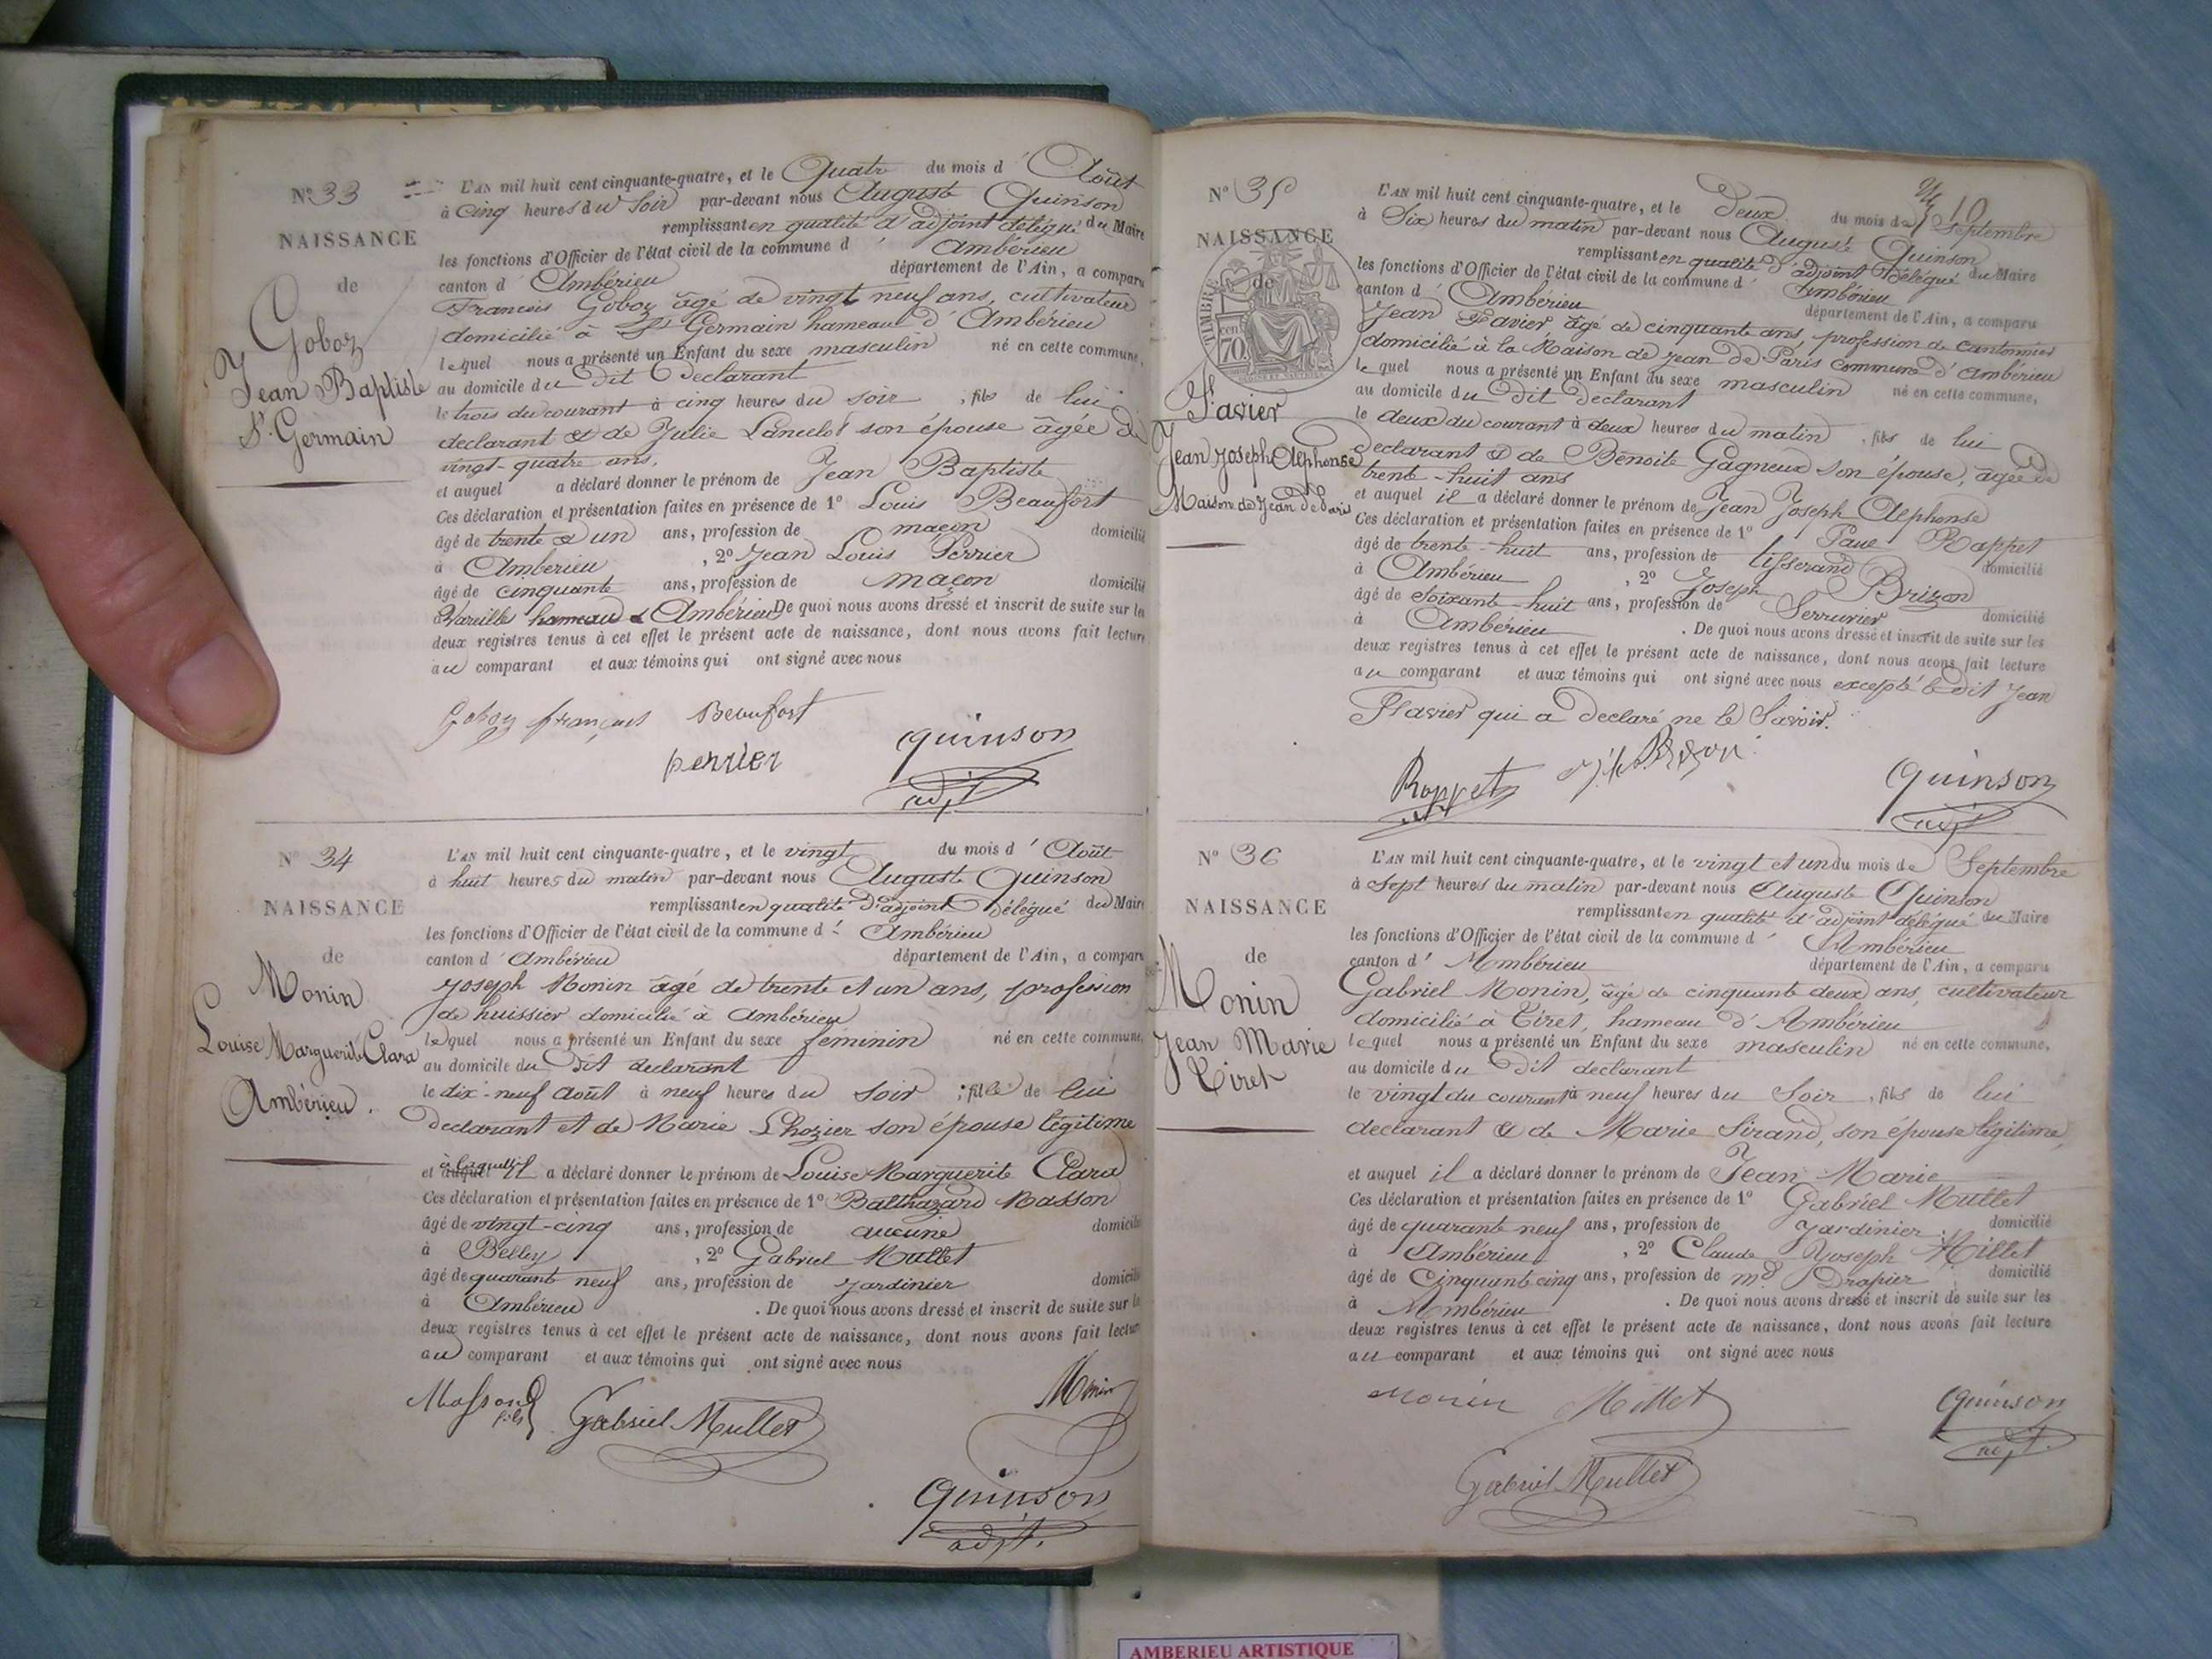 N° 33
NAISSANCE
de
Goboz
Jean Baptiste
St Germain
L'AN mil huit cent cinquante-quatre, et le Quatre du mois d' Août
à cinq heures du soir par-devant nous Auguste Quinson
remplissant en qualité d'adjoint délégué du Maire
les fonctions d'Officier de l'état civil de la commune d' Ambérieu
canton d' Ambérieu département de l'Ain, a comparu
Francois Goboz âgé de vingt neuf ans, cultivateur
domicilié à St Germain hameau d' Ambérieu
lequel nous a présenté un Enfant du sexe masculin né en cette commune,
au domicile du dit declarant
le trois du courant à cinq heures du soir, fils de lui
declarant et de Julie Lancelot son épouse âgée de
vingt-quatre ans.
et auquel a déclaré donner le prénom de Jean Baptiste
Ces déclaration et présentation faites en présence de 1° Louis Beaufort
âgé de trente et un ans, profession de maçon domicilié
à Ambérieu, 2° Jean Louis Perrier
âgé de cinquante ans, profession de maçon domicilié
à Vareille hameau d'Ambérieu De quoi nous avons dressé et inscrit de suite sur les
deux registres tenus à cet effet le présent acte de naissance, dont nous avons fait lecture
au comparant et aux témoins qui ont signé avec nous
Goboz françois Beaufort
perrier quinson
adjt
N° 34
NAISSANCE
de
Monin
Louise Marguerite Clara
Ambérieu.
L'AN mil huit cent cinquante-quatre, et le vingt du mois d' Août
à huit heures du matin par-devant nous Auguste Quinson
remplissant en qualité d'adjoint délégué du Maire
les fonctions d'Officier de l'état civil de la commune d' Ambérieu
canton d' Ambérieu département de l'Ain, a comparu
Joseph Monin âgé de trente et un ans, profession
de huissier domicilié à Ambérieu
lequel nous a présenté un Enfant du sexe féminin né en cette commune,
au domicile du dit declarant
le dix-neuf Août à neuf heures du soir; fille de lui
declarant et de Marie Lhozier son épouse légitime
et à laquelle il a déclaré donner le prénom de Louise Marguerite Clara
Ces déclaration et présentation faites en présence de 1° Balthazard Masson
âgé de vingt-cinq ans, profession de aucune domicilié
à Belley, 2° Gabriel Mullet
âgé de quarante neuf ans, profession de Jardinier domicilié
à Ambérieu. De quoi nous avons dressé et inscrit de suite sur les
deux registres tenus à cet effet le présent acte de naissance, dont nous avons fait lecture
au comparant et aux témoins qui ont signé avec nous
Masson fils Gabriel Mullet Monin
quinson
adjt.
N° 35
NAISSANCE
de
TIMBRE
70
Favier
Jean Joseph Alphonse
Maison de Jean de Paris
10
L'AN mil huit cent cinquante-quatre, et le Deux du mois de Septembre
à Six heures du matin par-devant nous Auguste Quinson
remplissant en qualité d'adjoint délégué du Maire
les fonctions d'Officier de l'état civil de la commune d' Ambérieu
canton d' Ambérieu département de l'Ain, a comparu
Jean Favier, âgé de cinquante ans, profession de cantonnier
domicilié à la Maison de Jean de Paris commune d'Ambérieu
lequel nous a présenté un Enfant du sexe masculin né en cette commune,
au domicile du dit declarant
le deux du courant à deux heures du matin, fils de lui
declarant et de Benoite Gagneux son épouse, âgée de
trente-huit ans
et auquel il a déclaré donner le prénom de Jean Joseph Alphonse
Ces déclaration et présentation faites en présence de 1° Paul Rappet
âgé de trente-huit ans, profession de tisserand domicilié
à Ambérieu, 2° Joseph Brizon
âgé de soixante-huit ans, profession de Serrurier domicilié
à Ambérieu. De quoi nous avons dressé et inscrit de suite sur les
deux registres tenus à cet effet le présent acte de naissance, dont nous avons fait lecture
au comparant et aux témoins qui ont signé avec nous excepté le dit Jean
Favier qui a declaré ne le savoir.
Rappet quinson
adjt
N° 36
NAISSANCE
de
Monin
Jean Marie
Tiret
L'AN mil huit cent cinquante-quatre, et le vingt et un du mois de Septembre
à sept heures du matin par-devant nous Auguste Quinson
remplissant en qualité d'adjoint délégué du Maire
les fonctions d'Officier de l'état civil de la commune d' Ambérieu
canton d' Ambérieu département de l'Ain, a comparu
Gabriel Monin, âgé de cinquante deux ans, cultivateur
domicilié à Tiret, hameau d'Ambérieu
lequel nous a présenté un Enfant du sexe masculin né en cette commune,
au domicile du dit declarant
le vingt du courant à neuf heures du soir, fils de lui
declarant et de Marie Sirand, son épouse légitime,
et auquel il a déclaré donner le prénom de Jean Marie
Ces déclaration et présentation faites en présence de 1° Gabriel Mullet
âgé de quarante neuf ans, profession de Jardinier domicilié
à Ambérieu, 2° Claude Joseph Millet
âgé de Cinquante cinq ans, profession de md Drapier domicilié
à Ambérieu. De quoi nous avons dressé et inscrit de suite sur les
deux registres tenus à cet effet le présent acte de naissance, dont nous avons fait lecture
au comparant et aux témoins qui ont signé avec nous
monin Millet quinson
adjt.
Gabriel Mullet
AMBERIEU ARTISTIQUE